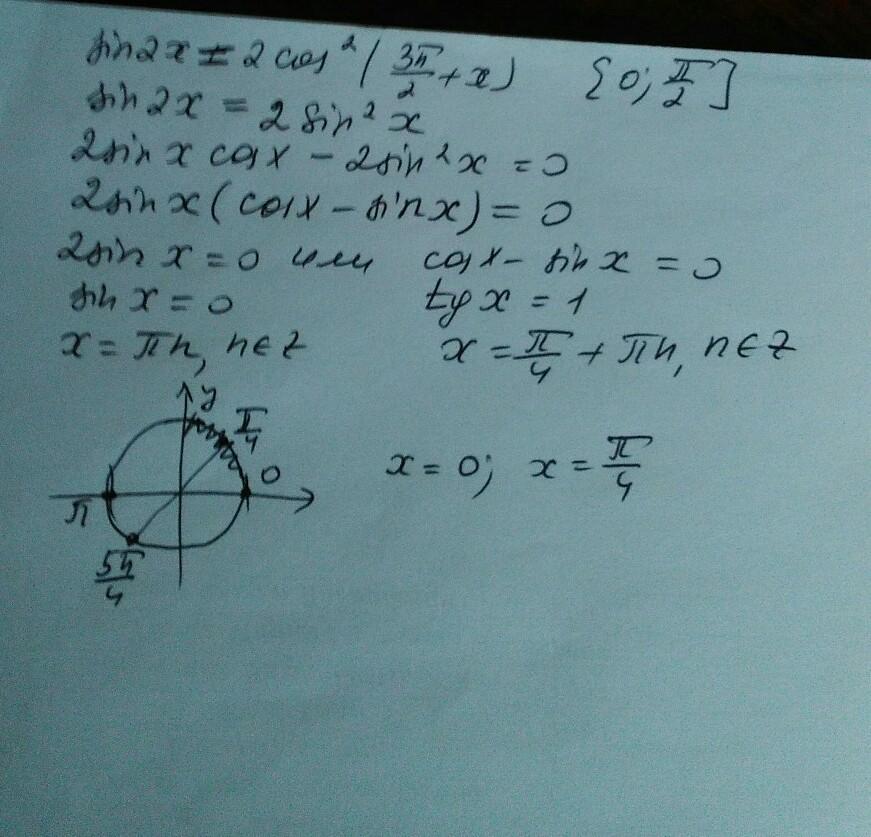 sin2x = 2 cos² ( 3π/2 + x ) [0; π/2]
sin 2x = 2 sin² x
2sin x cosx - 2sin² x = 0
2sin x ( cosx - sin x ) = 0
2sin x = 0 или cosx - sin x = 0
sin x = 0 tg x = 1
x = πn, n∈Z x = π/4 + πn, n∈Z
y
π/4
0 x = 0; x = π/4
π
5π/4